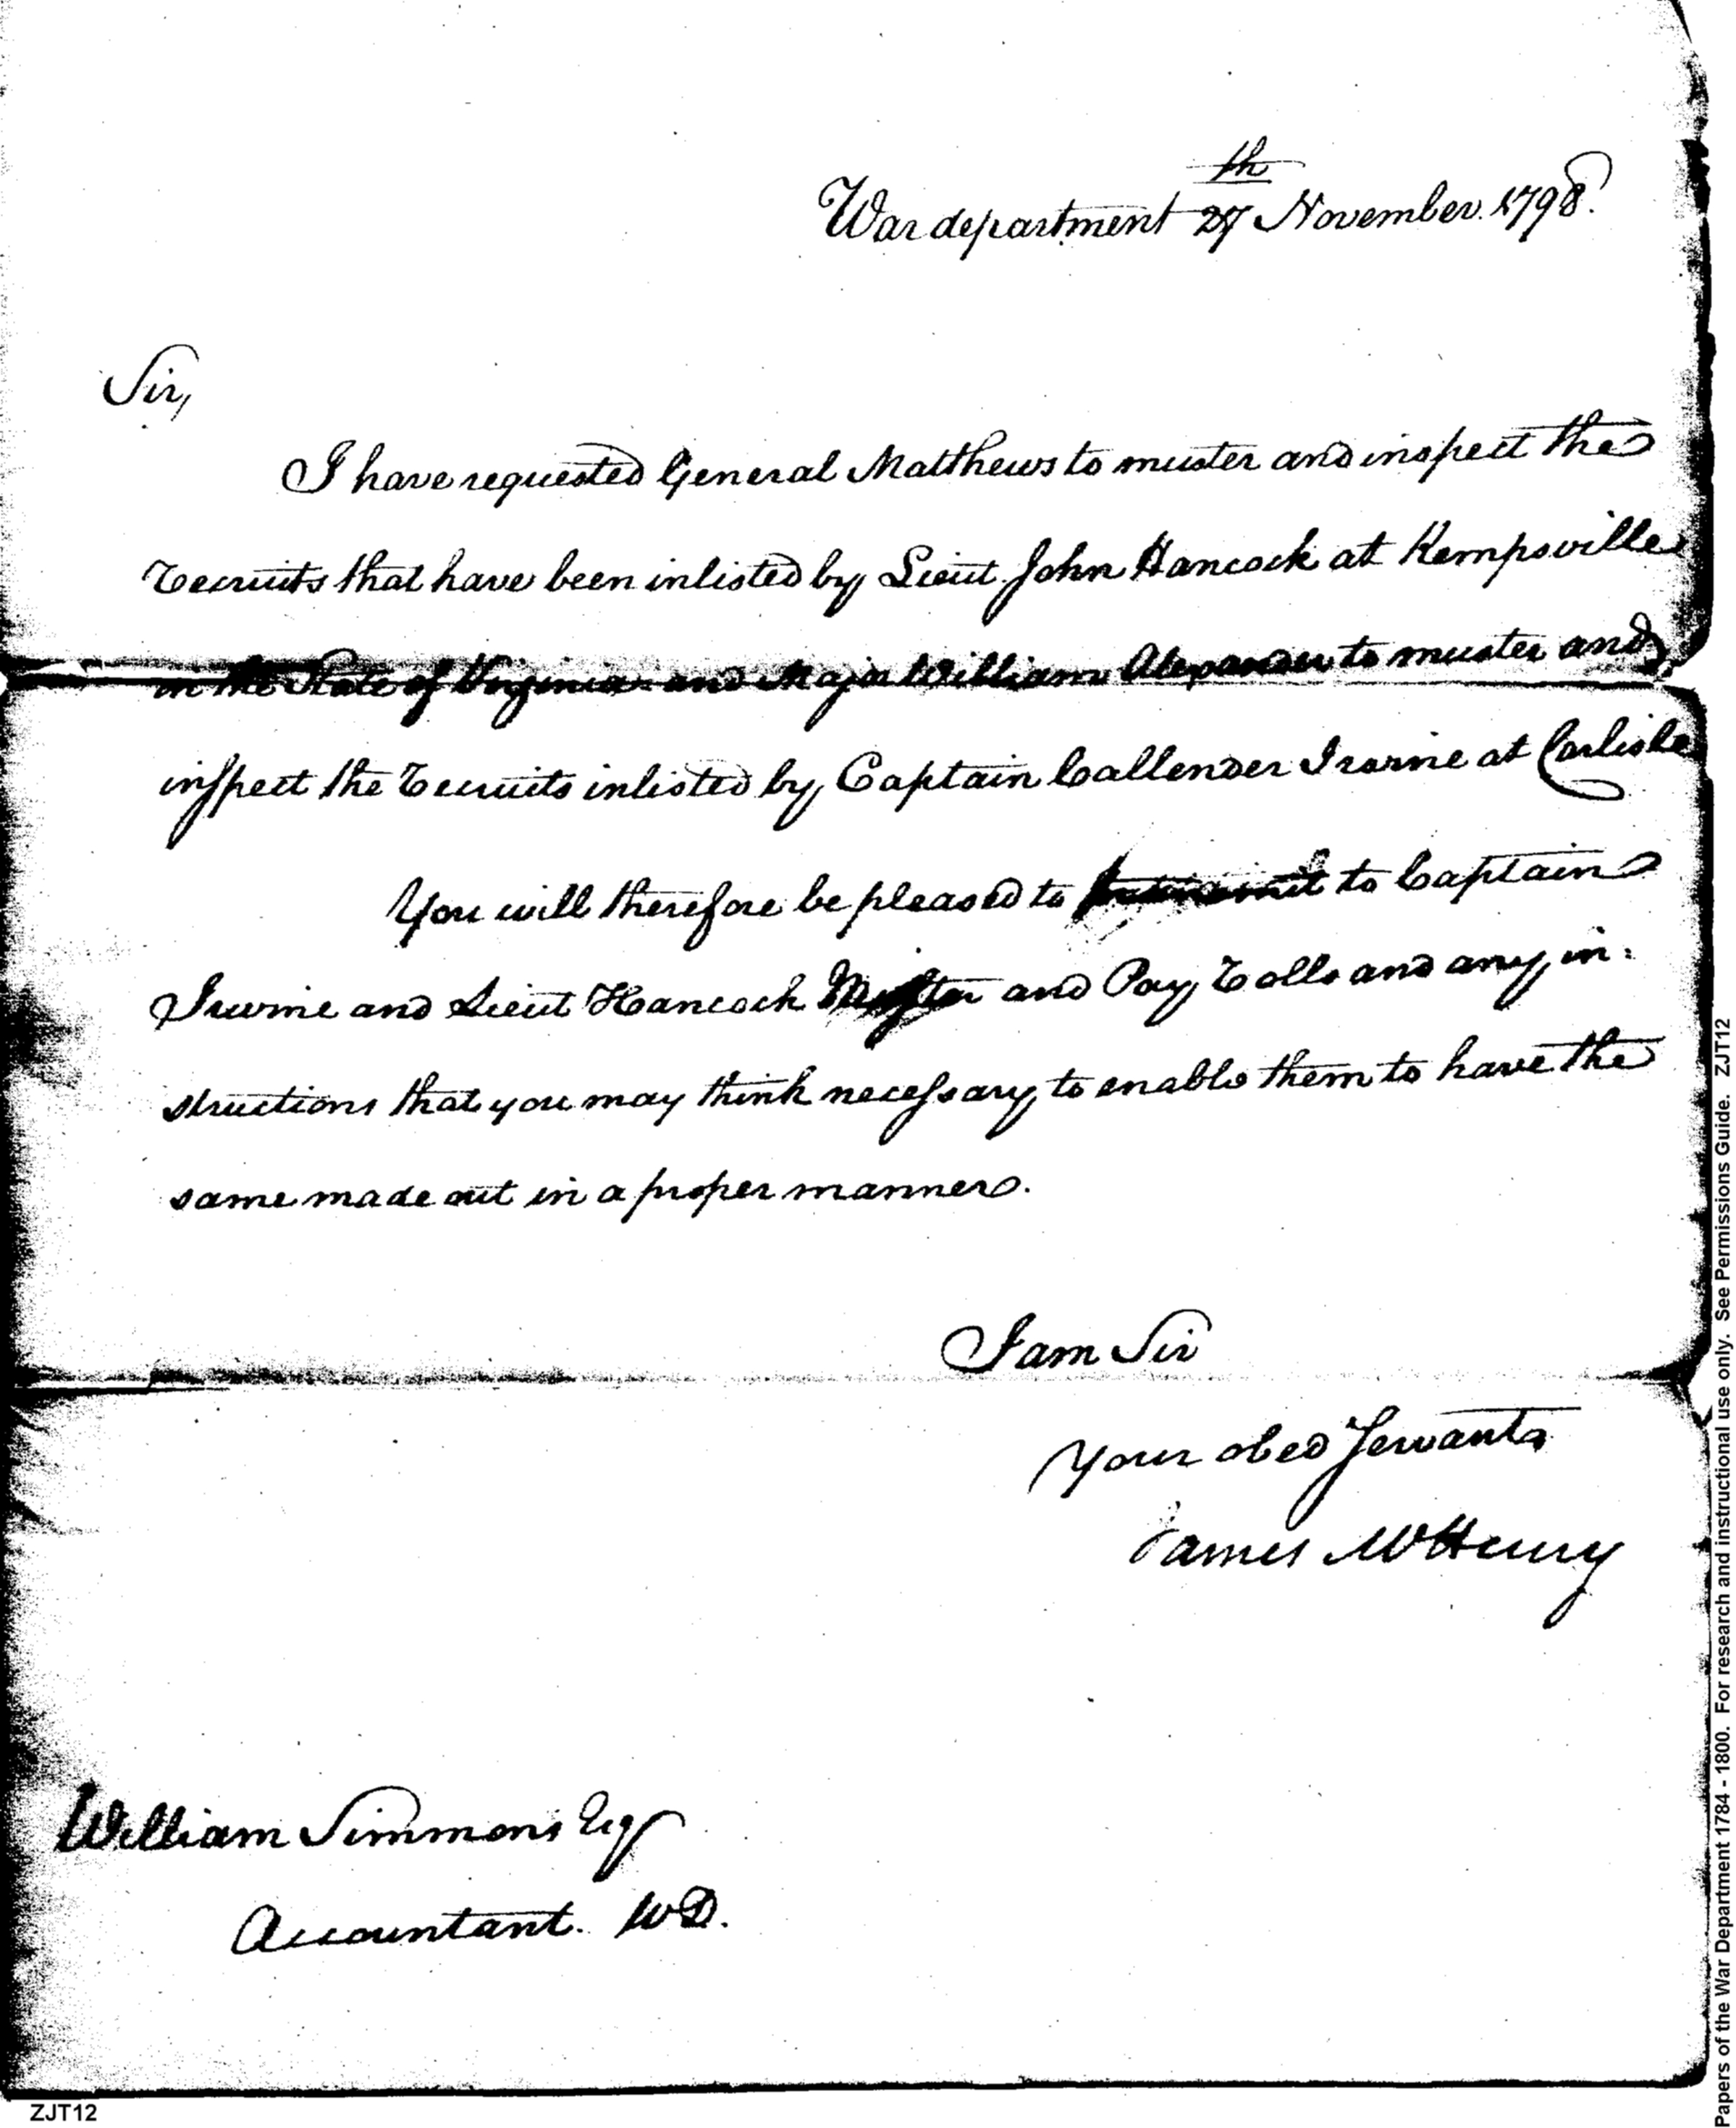 War department 27th November. 1798.
Sir,
I have requested General Matthews to muster and inspect the
recruits that have been inlisted by Lieut. John Hancock at Kempsville
in the State of Virginia and Major William Alexander to muster and
inspect the recruits inlisted by Captain Callender Irvine at Carlisle
You will therefore be pleased to transmit to Captain
Irvine and Lieut Hancock Muster and Pay rolls and any in:
structions that you may think necessary to enable them to have the
same made out in a proper manner.
I am Sir
Your obed Servant
James McHenry
William Simmons Esq
Accountant. W D.
ZJT12
Papers of the War Department 1784 - 1800. For research and instructional use only. See Permissions Guide. ZJT12